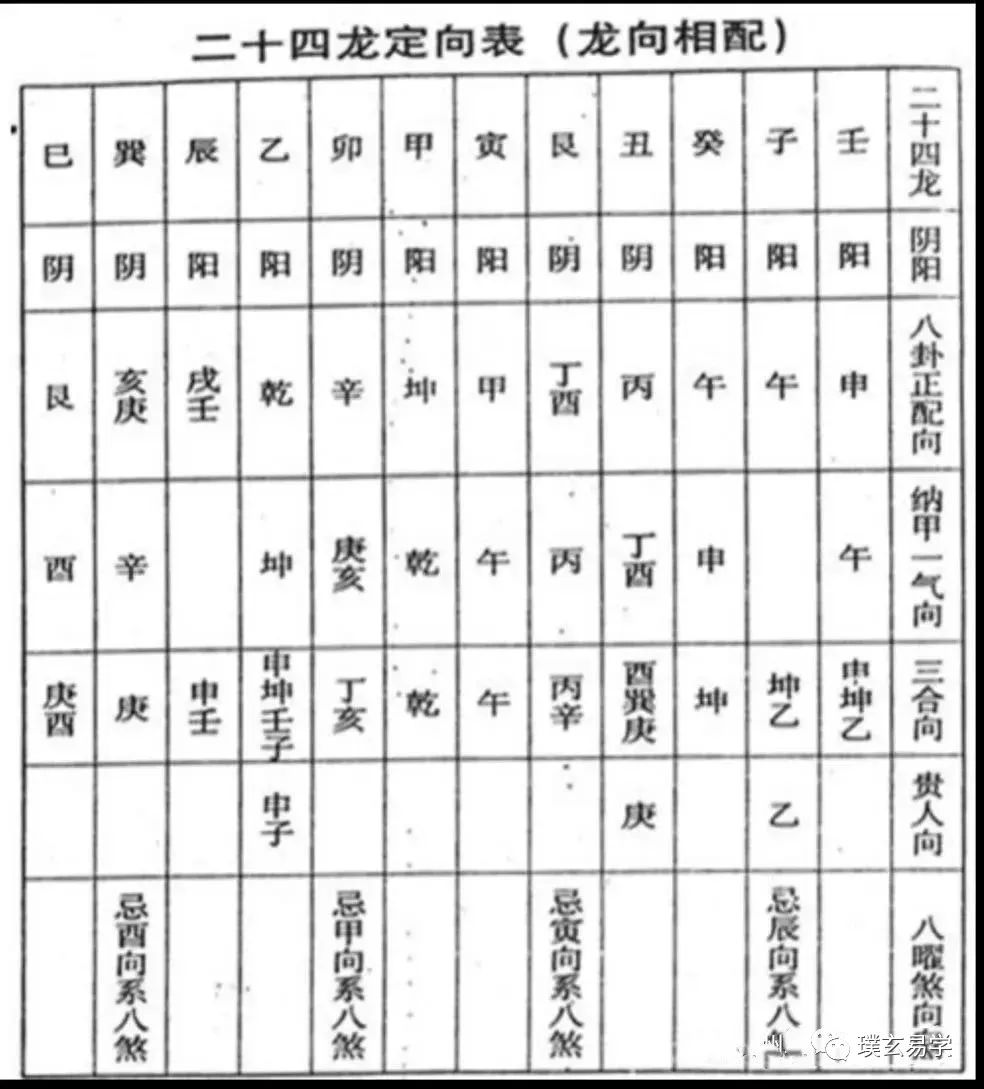 二十四龙定向表（龙向相配）
二十四龙 壬 子 癸 丑 艮 寅 甲 卯 乙 辰 巽 巳
阴阳 阳 阳 阳 阴 阴 阳 阳 阴 阳 阳 阴 阴
八卦正配向 申 午 午 丙 丁酉 甲 坤 辛 乾 戌壬 亥庚 艮
纳甲一气向 午 申 丁酉 丙 午 乾 庚亥 坤 辛 酉
三合向 申坤乙 坤乙 坤 酉巽庚 丙辛 午 乾 丁亥 申坤壬子 申壬 庚 庚酉
贵人向 乙 庚 申子
八曜煞向 忌辰向系八 忌寅向系八煞 忌甲向系八煞 忌酉向系八煞
璞玄易学